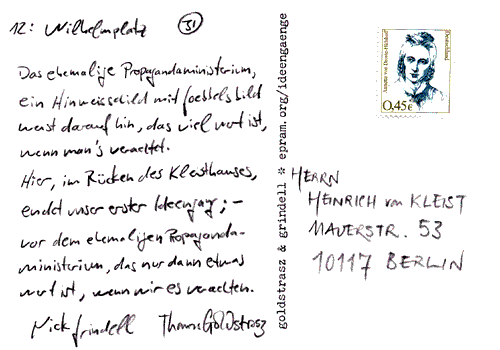 12: Wilhelmplatz 31
Das ehemalige Propagandaministerium,
ein Hinweisschild mit Goebbelsbild
weist darauf hin, das viel wert ist,
wenn man's verachtet.
Hier, im Rücken des Kleisthauses,
endet unser erster Ideengang; –
vor dem ehemaligen Propaganda-
ministerium, das nur dann etwas
wert ist, wenn wir es verachten.
Nick Grindell Thomas Goldstrasz
goldstrasz & grindell * epram.org/ideengaenge
Annette von Droste-Hülshoff
Deutschland
0,45€
HERRN
HEINRICH von KLEIST
MAUERSTR. 53
10117 BERLIN